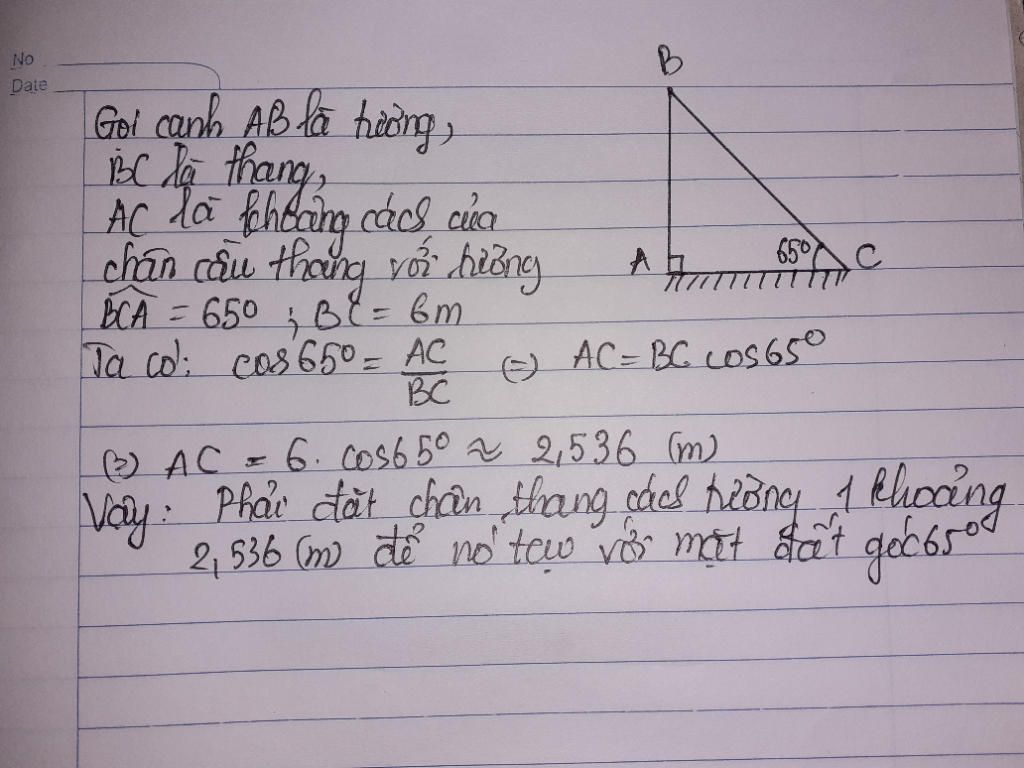 No
Date
B
Gọi cạnh AB là tường,
BC là thang,
AC là khoảng cách của
chân cầu thang với tường
A 65° C
BCA = 65° ; BC = 6m
Ta có: cos65° = AC/BC (=) AC = BC cos65°
(=) AC = 6. cos65° ≈ 2,536 (m)
Vậy: Phải đặt chân thang cách tường 1 khoảng
2,536 (m) để nó tạo với mặt đất góc 65°